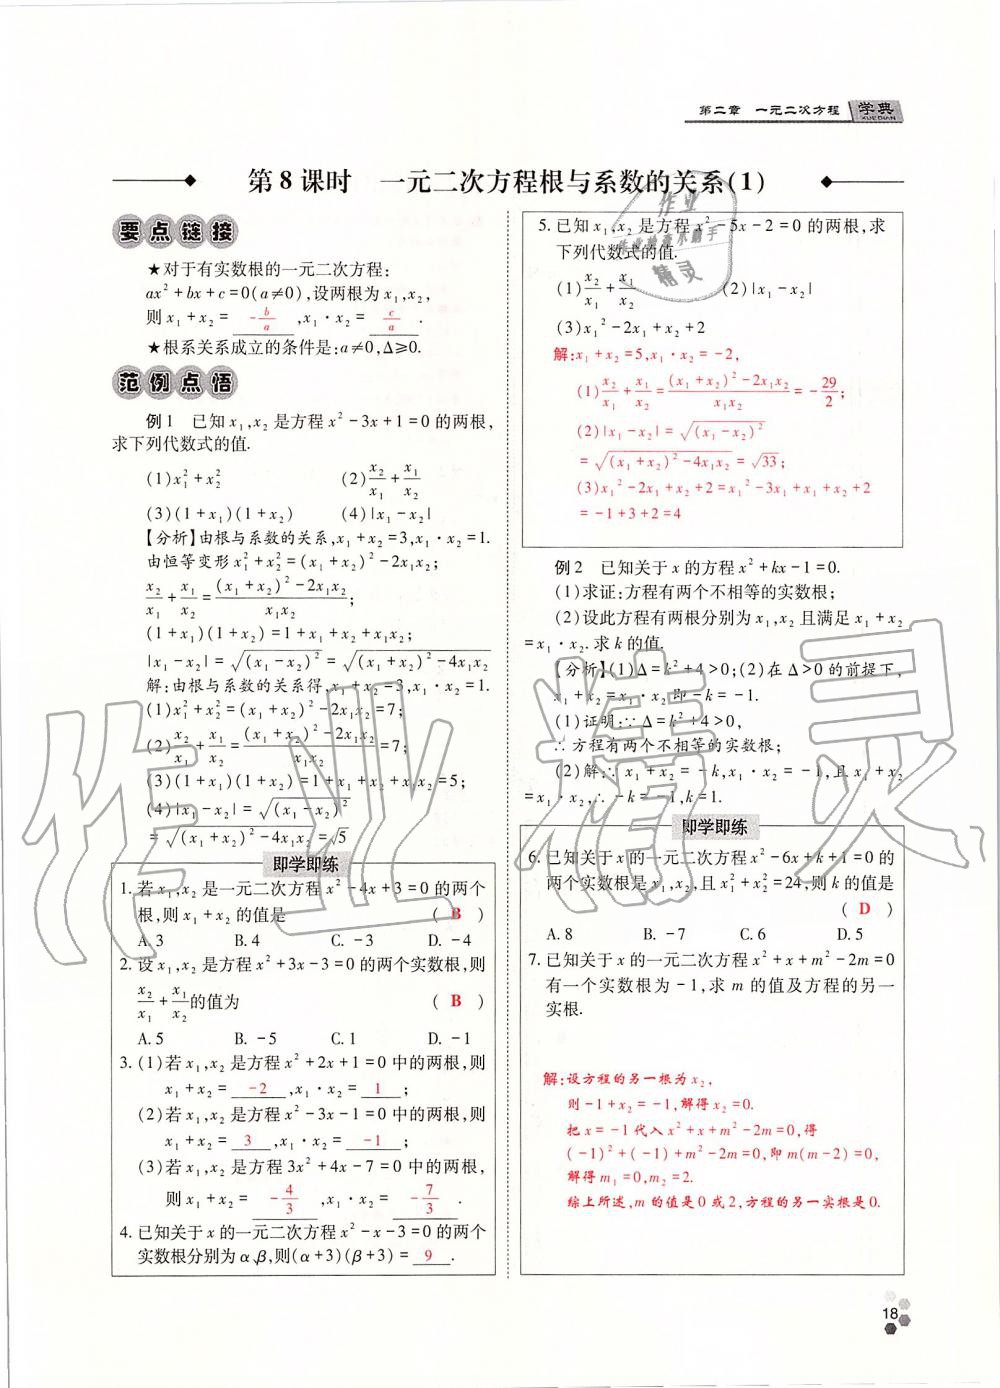 第二章 一元二次方程 学典
XUEDIAN
第8课时 一元二次方程根与系数的关系(1)
要点链接
★对于有实数根的一元二次方程:
ax²+bx+c=0(a≠0),设两根为x₁,x₂,
则x₁+x₂= -b/a ,x₁·x₂= c/a .
★根系关系成立的条件是:a≠0,Δ≥0.
范例点悟
例1 已知x₁,x₂是方程x²-3x+1=0的两根,
求下列代数式的值.
(1)x₁²+x₂² (2)x₂/x₁+x₁/x₂
(3)(1+x₁)(1+x₂) (4)|x₁-x₂|
【分析】由根与系数的关系,x₁+x₂=3,x₁·x₂=1.
由恒等变形x₁²+x₂²=(x₁+x₂)²-2x₁x₂;
x₂/x₁+x₁/x₂=((x₁+x₂)²-2x₁x₂)/(x₁x₂);
(1+x₁)(1+x₂)=1+x₁+x₂+x₁x₂;
|x₁-x₂|=√((x₁-x₂)²)=√((x₁+x₂)²-4x₁x₂)
解:由根与系数的关系得,x₁+x₂=3,x₁·x₂=1.
(1)x₁²+x₂²=(x₁+x₂)²-2x₁x₂=7;
(2)x₂/x₁+x₁/x₂=((x₁+x₂)²-2x₁x₂)/(x₁x₂)=7;
(3)(1+x₁)(1+x₂)=1+x₁+x₂+x₁x₂=5;
(4)|x₁-x₂|=√((x₁-x₂)²)
=√((x₁+x₂)²-4x₁x₂)=√5
即学即练
1. 若x₁,x₂是一元二次方程x²-4x+3=0的两个
根,则x₁+x₂的值是 ( B )
A. 3 B. 4 C. -3 D. -4
2. 设x₁,x₂是方程x²+3x-3=0的两个实数根,则
x₂/x₁+x₁/x₂的值为 ( B )
A. 5 B. -5 C. 1 D. -1
3. (1)若x₁,x₂是方程x²+2x+1=0中的两根,则
x₁+x₂= -2 ,x₁·x₂= 1 ;
(2)若x₁,x₂是方程x²-3x-1=0中的两根,则
x₁+x₂= 3 ,x₁·x₂= -1 ;
(3)若x₁,x₂是方程3x²+4x-7=0中的两根,
则x₁+x₂= -4/3 ,x₁·x₂= -7/3 .
4. 已知关于x的一元二次方程x²-x-3=0的两个
实数根分别为α、β,则(α+3)(β+3)= 9 .
5. 已知x₁,x₂是方程x²-5x-2=0的两根,求
下列代数式的值.
(1)x₂/x₁+x₁/x₂ (2)|x₁-x₂|
(3)x₁²-2x₁+x₂+2
解:x₁+x₂=5,x₁·x₂=-2,
(1)x₂/x₁+x₁/x₂=((x₁+x₂)²-2x₁x₂)/(x₁x₂)=-29/2;
(2)|x₁-x₂|=√((x₁-x₂)²)
=√((x₁+x₂)²-4x₁x₂)=√33;
(3)x₁²-2x₁+x₂+2=x₁²-3x₁+x₁+x₂+2
=-1+3+2=4
例2 已知关于x的方程x²+kx-1=0.
(1)求证:方程有两个不相等的实数根;
(2)设此方程有两根分别为x₁,x₂且满足x₁+x₂
=x₁·x₂.求k的值.
【分析】(1)Δ=k²+4>0;(2)在Δ>0的前提下,
x₁+x₂=x₁·x₂即-k=-1.
(1)证明:∵Δ=k²+4>0,
∴方程有两个不相等的实数根;
(2)解:∵x₁+x₂=-k,x₁·x₂=-1,且x₁+x₂
=x₁·x₂,∴-k=-1,k=1.
即学即练
6. 已知关于x的一元二次方程x²-6x+k+1=0的
两个实数根是x₁,x₂,且x₁²+x₂²=24,则k的值是
( D )
A. 8 B. -7 C. 6 D. 5
7. 已知关于x的一元二次方程x²+x+m²-2m=0
有一个实数根为-1,求m的值及方程的另一
实根.
解:设方程的另一根为x₂,
则-1+x₂=-1,解得x₂=0.
把x=-1代入x²+x+m²-2m=0,得
(-1)²+(-1)+m²-2m=0,即m(m-2)=0,
解得m₁=0,m₂=2.
综上所述,m的值是0或2,方程的另一实根是0.
18
作业精灵
作业
精灵